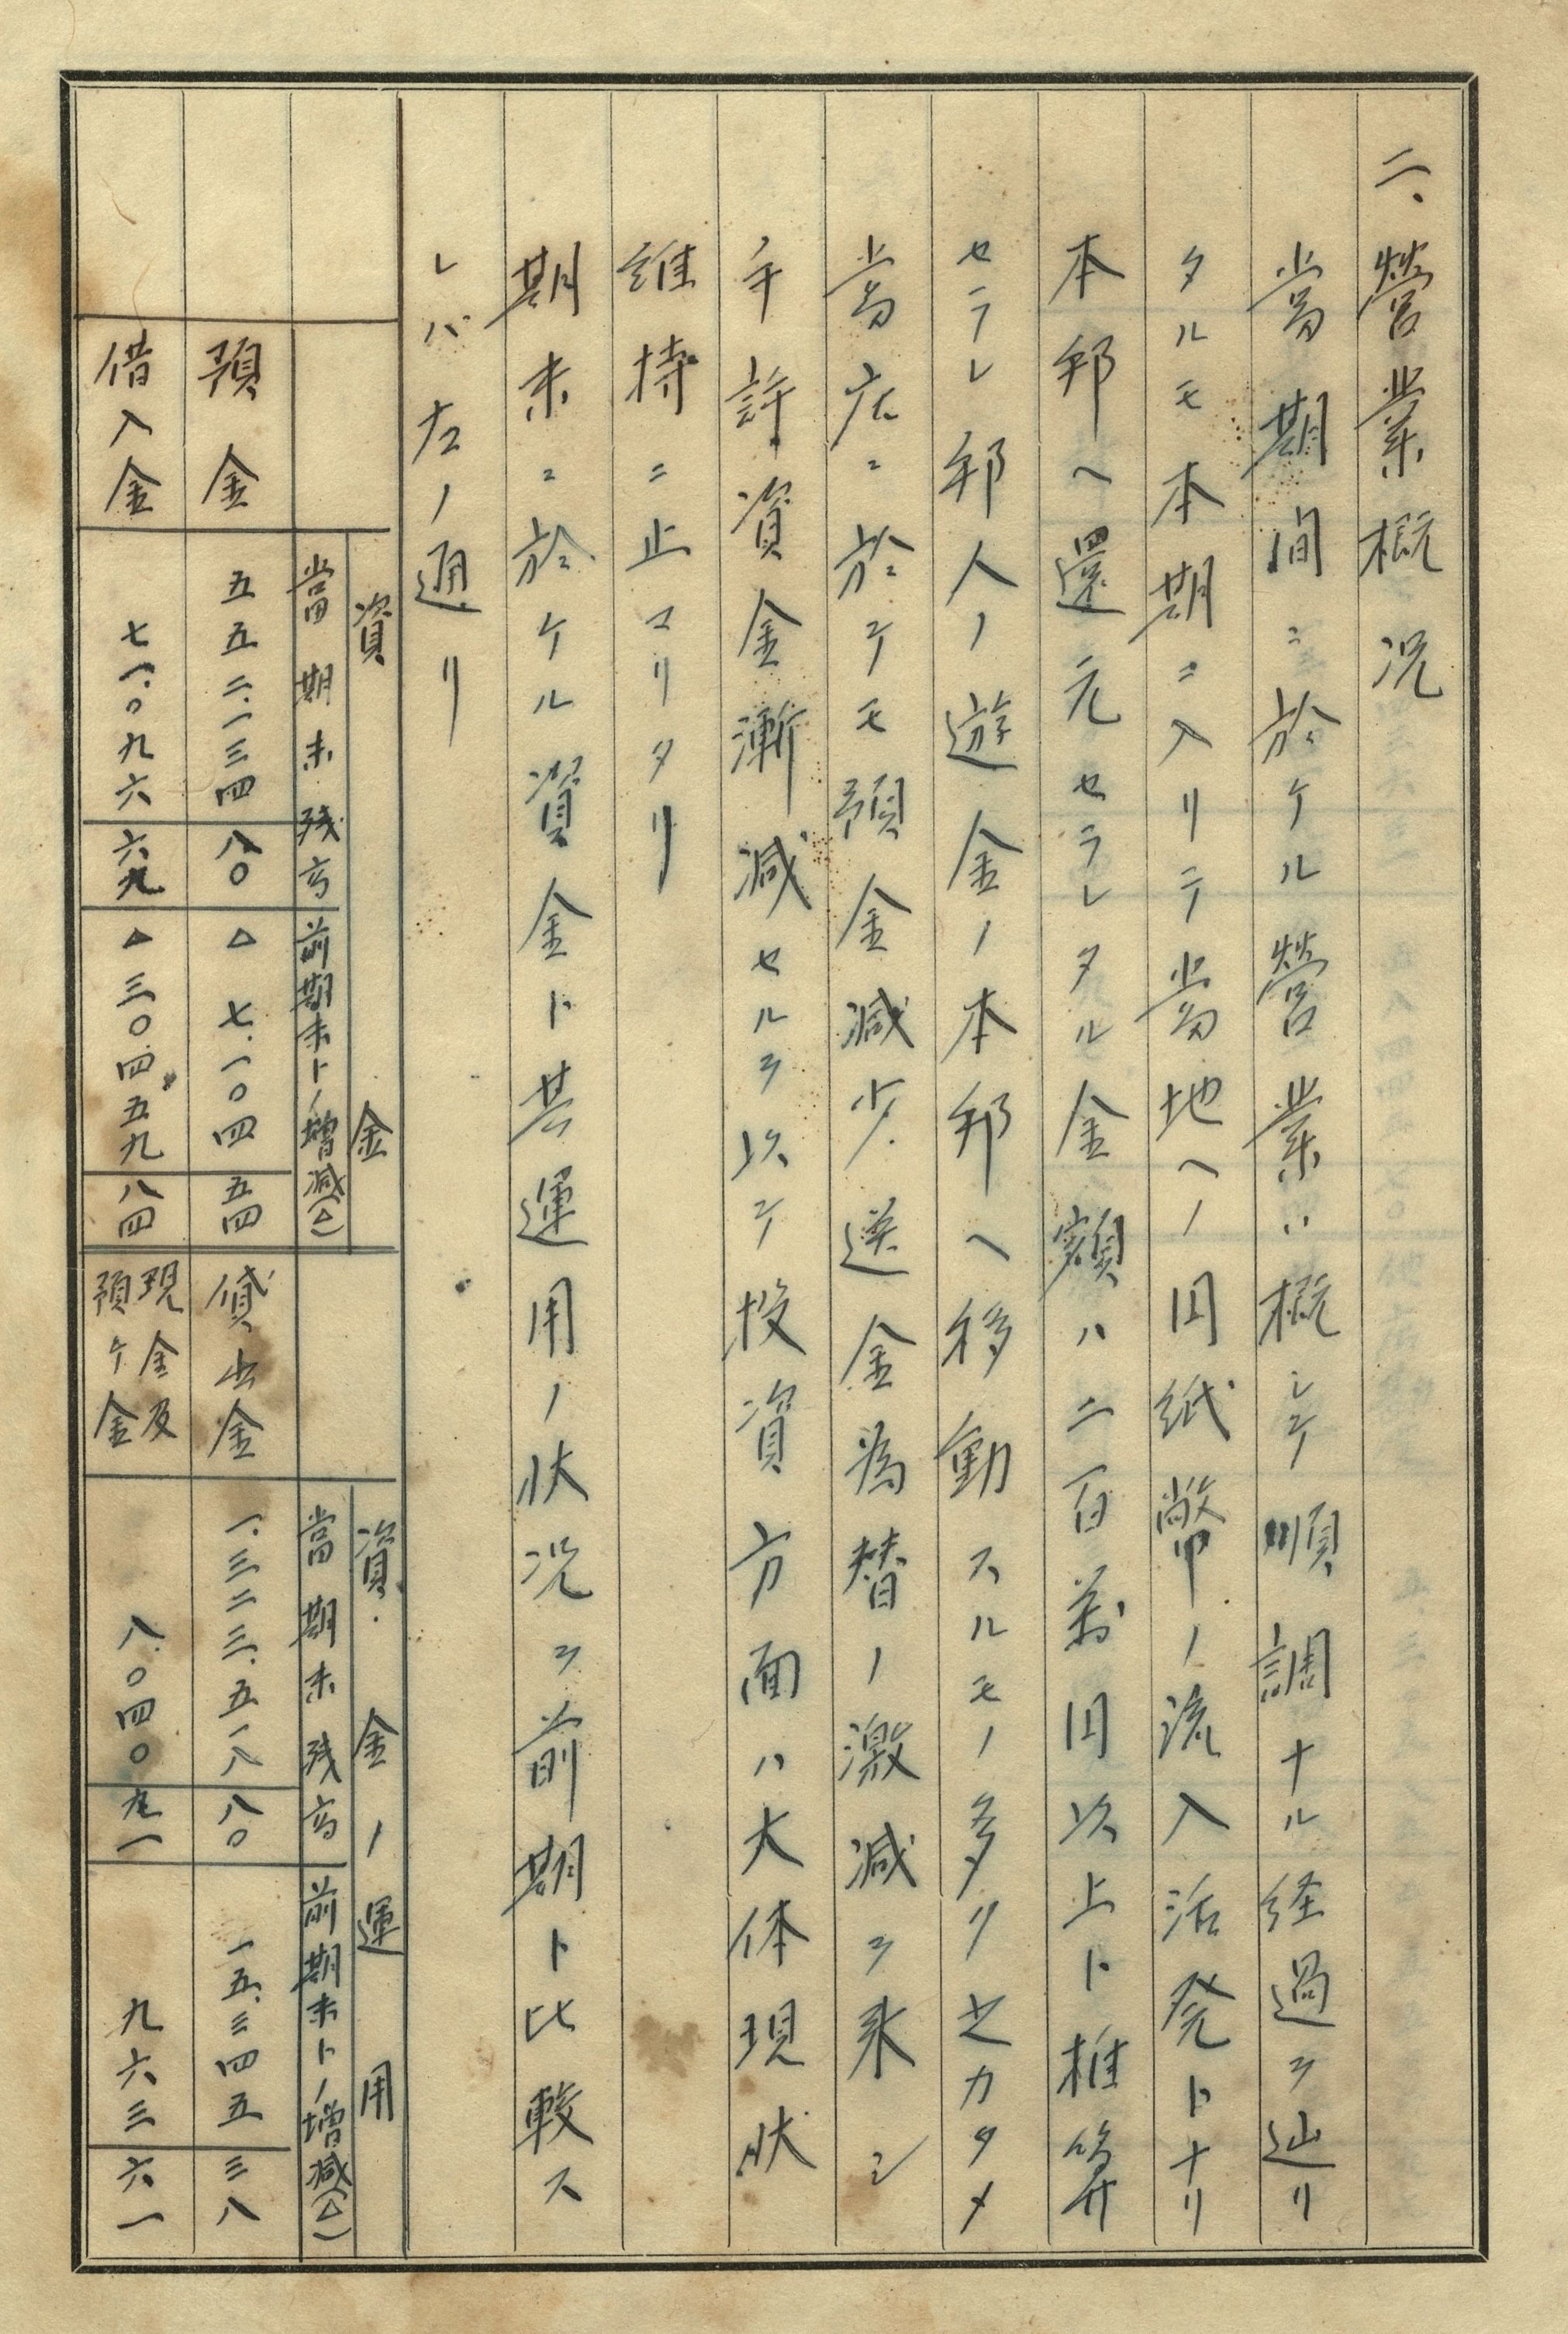 二、營業概况
當期間ニ於ケル營業ハ概シテ順調ナル経過ヲ辿リ
タルモ本期ニ入リテ當地ヘノ円紙幣ノ流入活発トナリ
本邦ヘ還元セラレタル金額ハ二百萬円以上ト推算
セラレ邦人ノ遊金ノ本邦ヘ移動スルモノ多ク之カタメ
當店ニ於テモ預金減少送金為替ノ激減ヲ来シ
手許資金漸減セルヲ以テ投資方面ハ大体現状
維持ニ止マリタリ
期末ニ於ケル資金ト其運用ノ状况ヲ前期ト比較ス
レバ左ノ通リ
資金 資金ノ運用
當期末残高 前期末トノ増減(△) 當期末残高 前期末トノ増減(△)
預金 五五二.一三四 八〇 △ 七.一〇四 五四 貸出金 一.三二三.五一八 八〇 一五.三四五 三八
借入金 七一.〇九六 六九 △ 三〇.四五九 八四 現金及預ケ金 八.〇四〇 九一 九六三 六一